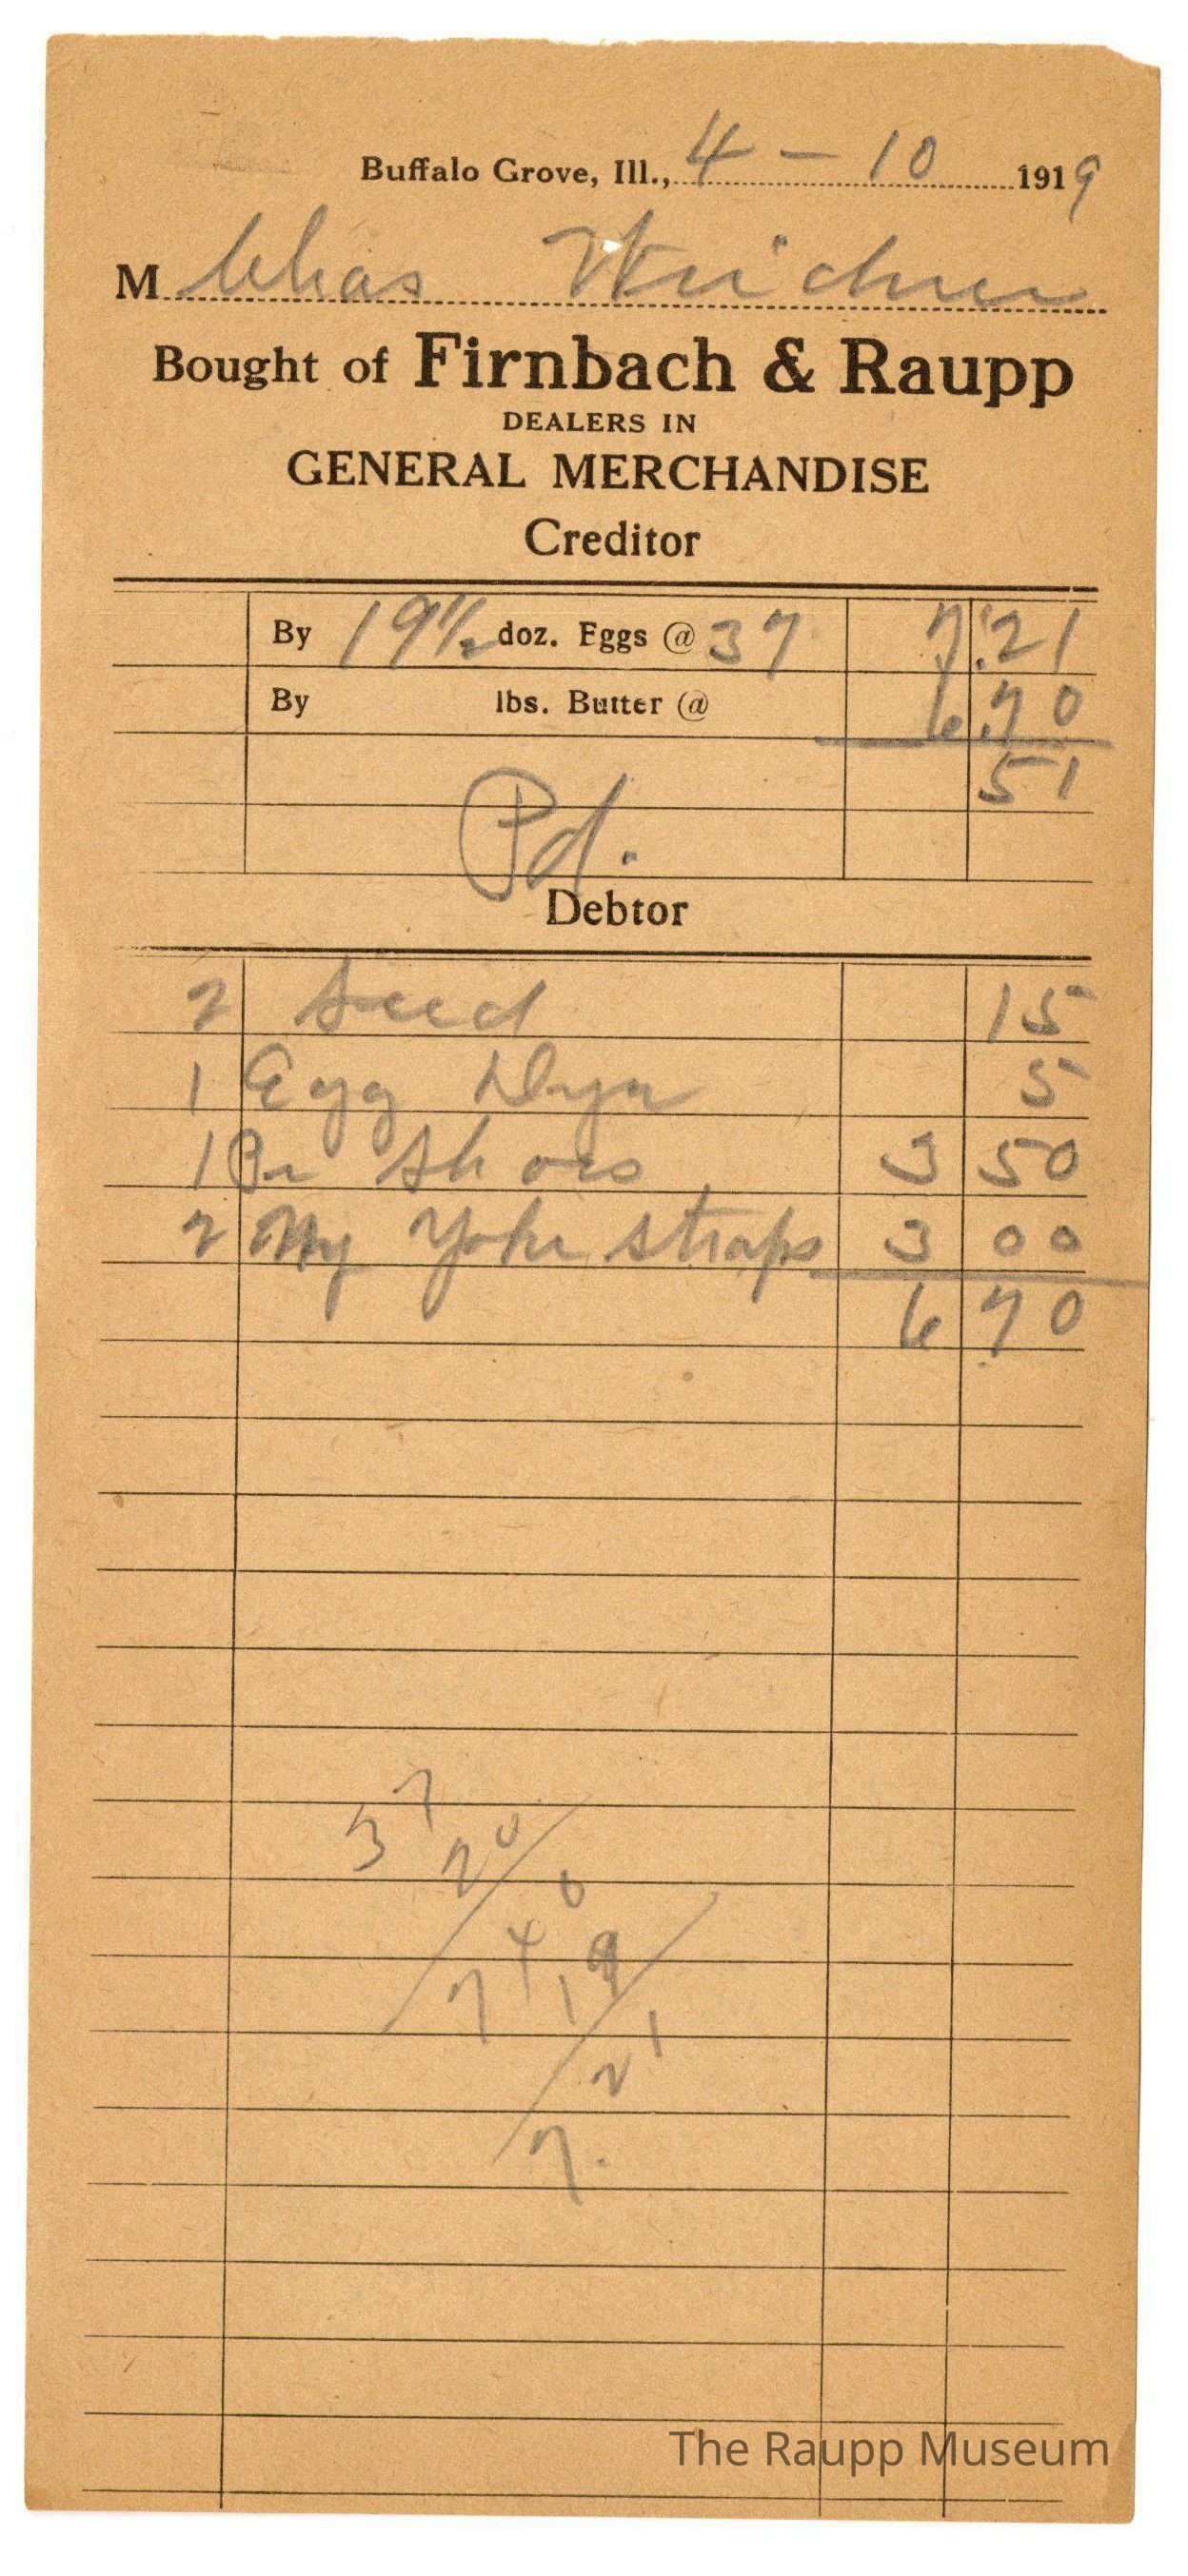 Buffalo Grove, Ill., 4 - 10 1919
M Chas Weichner
Bought of Firnbach & Raupp
DEALERS IN
GENERAL MERCHANDISE
Creditor
By 19½ doz. Eggs @ 37 7.21
By lbs. Butter @ 6.70
51
Pd.
Debtor
2 Seed 15
1 Egg Dye 5
1 Pr Shoes 3 50
2 Yoke straps 3 00
6 70
37
20
740
19
7.21
The Raupp Museum